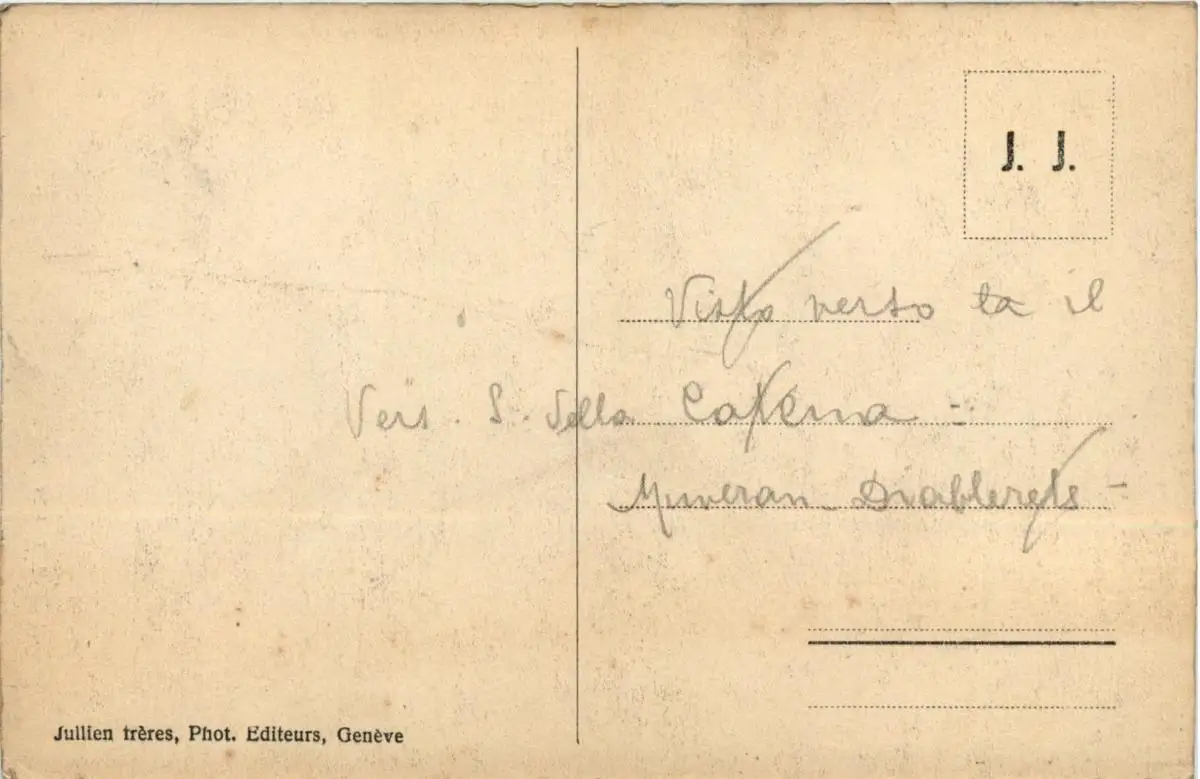 J. J.
Visto verso la il
Vers. S. della Caterna -
Muveran - Diablerets -
Jullien frères, Phot. Editeurs, Genève